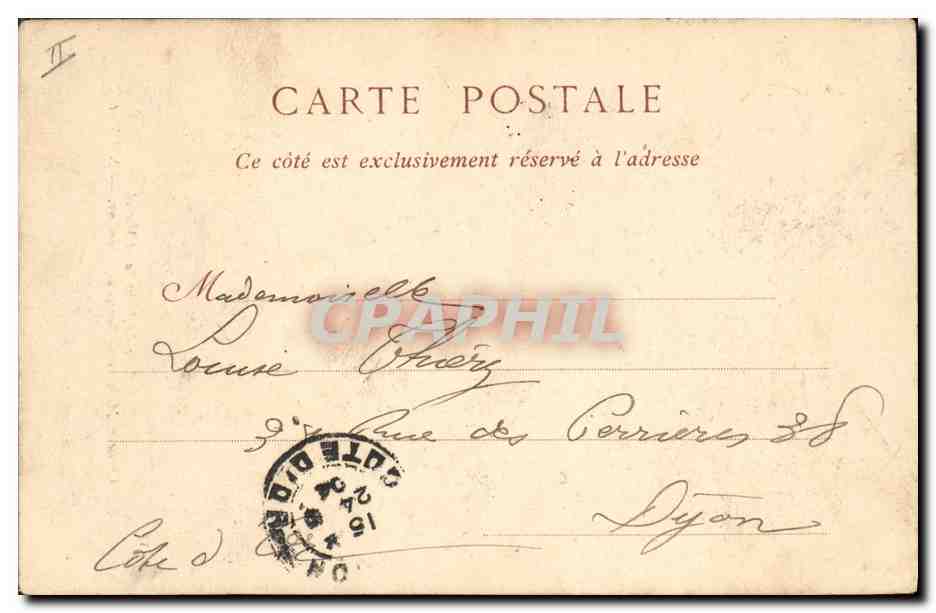 II
CARTE POSTALE
Ce côté est exclusivement réservé à l'adresse
Mademoiselle
CPAPHIL
Louise Thiéry
Rue des Perrières 38
Dijon
Côte d'Or
COTE D'OR
15
24